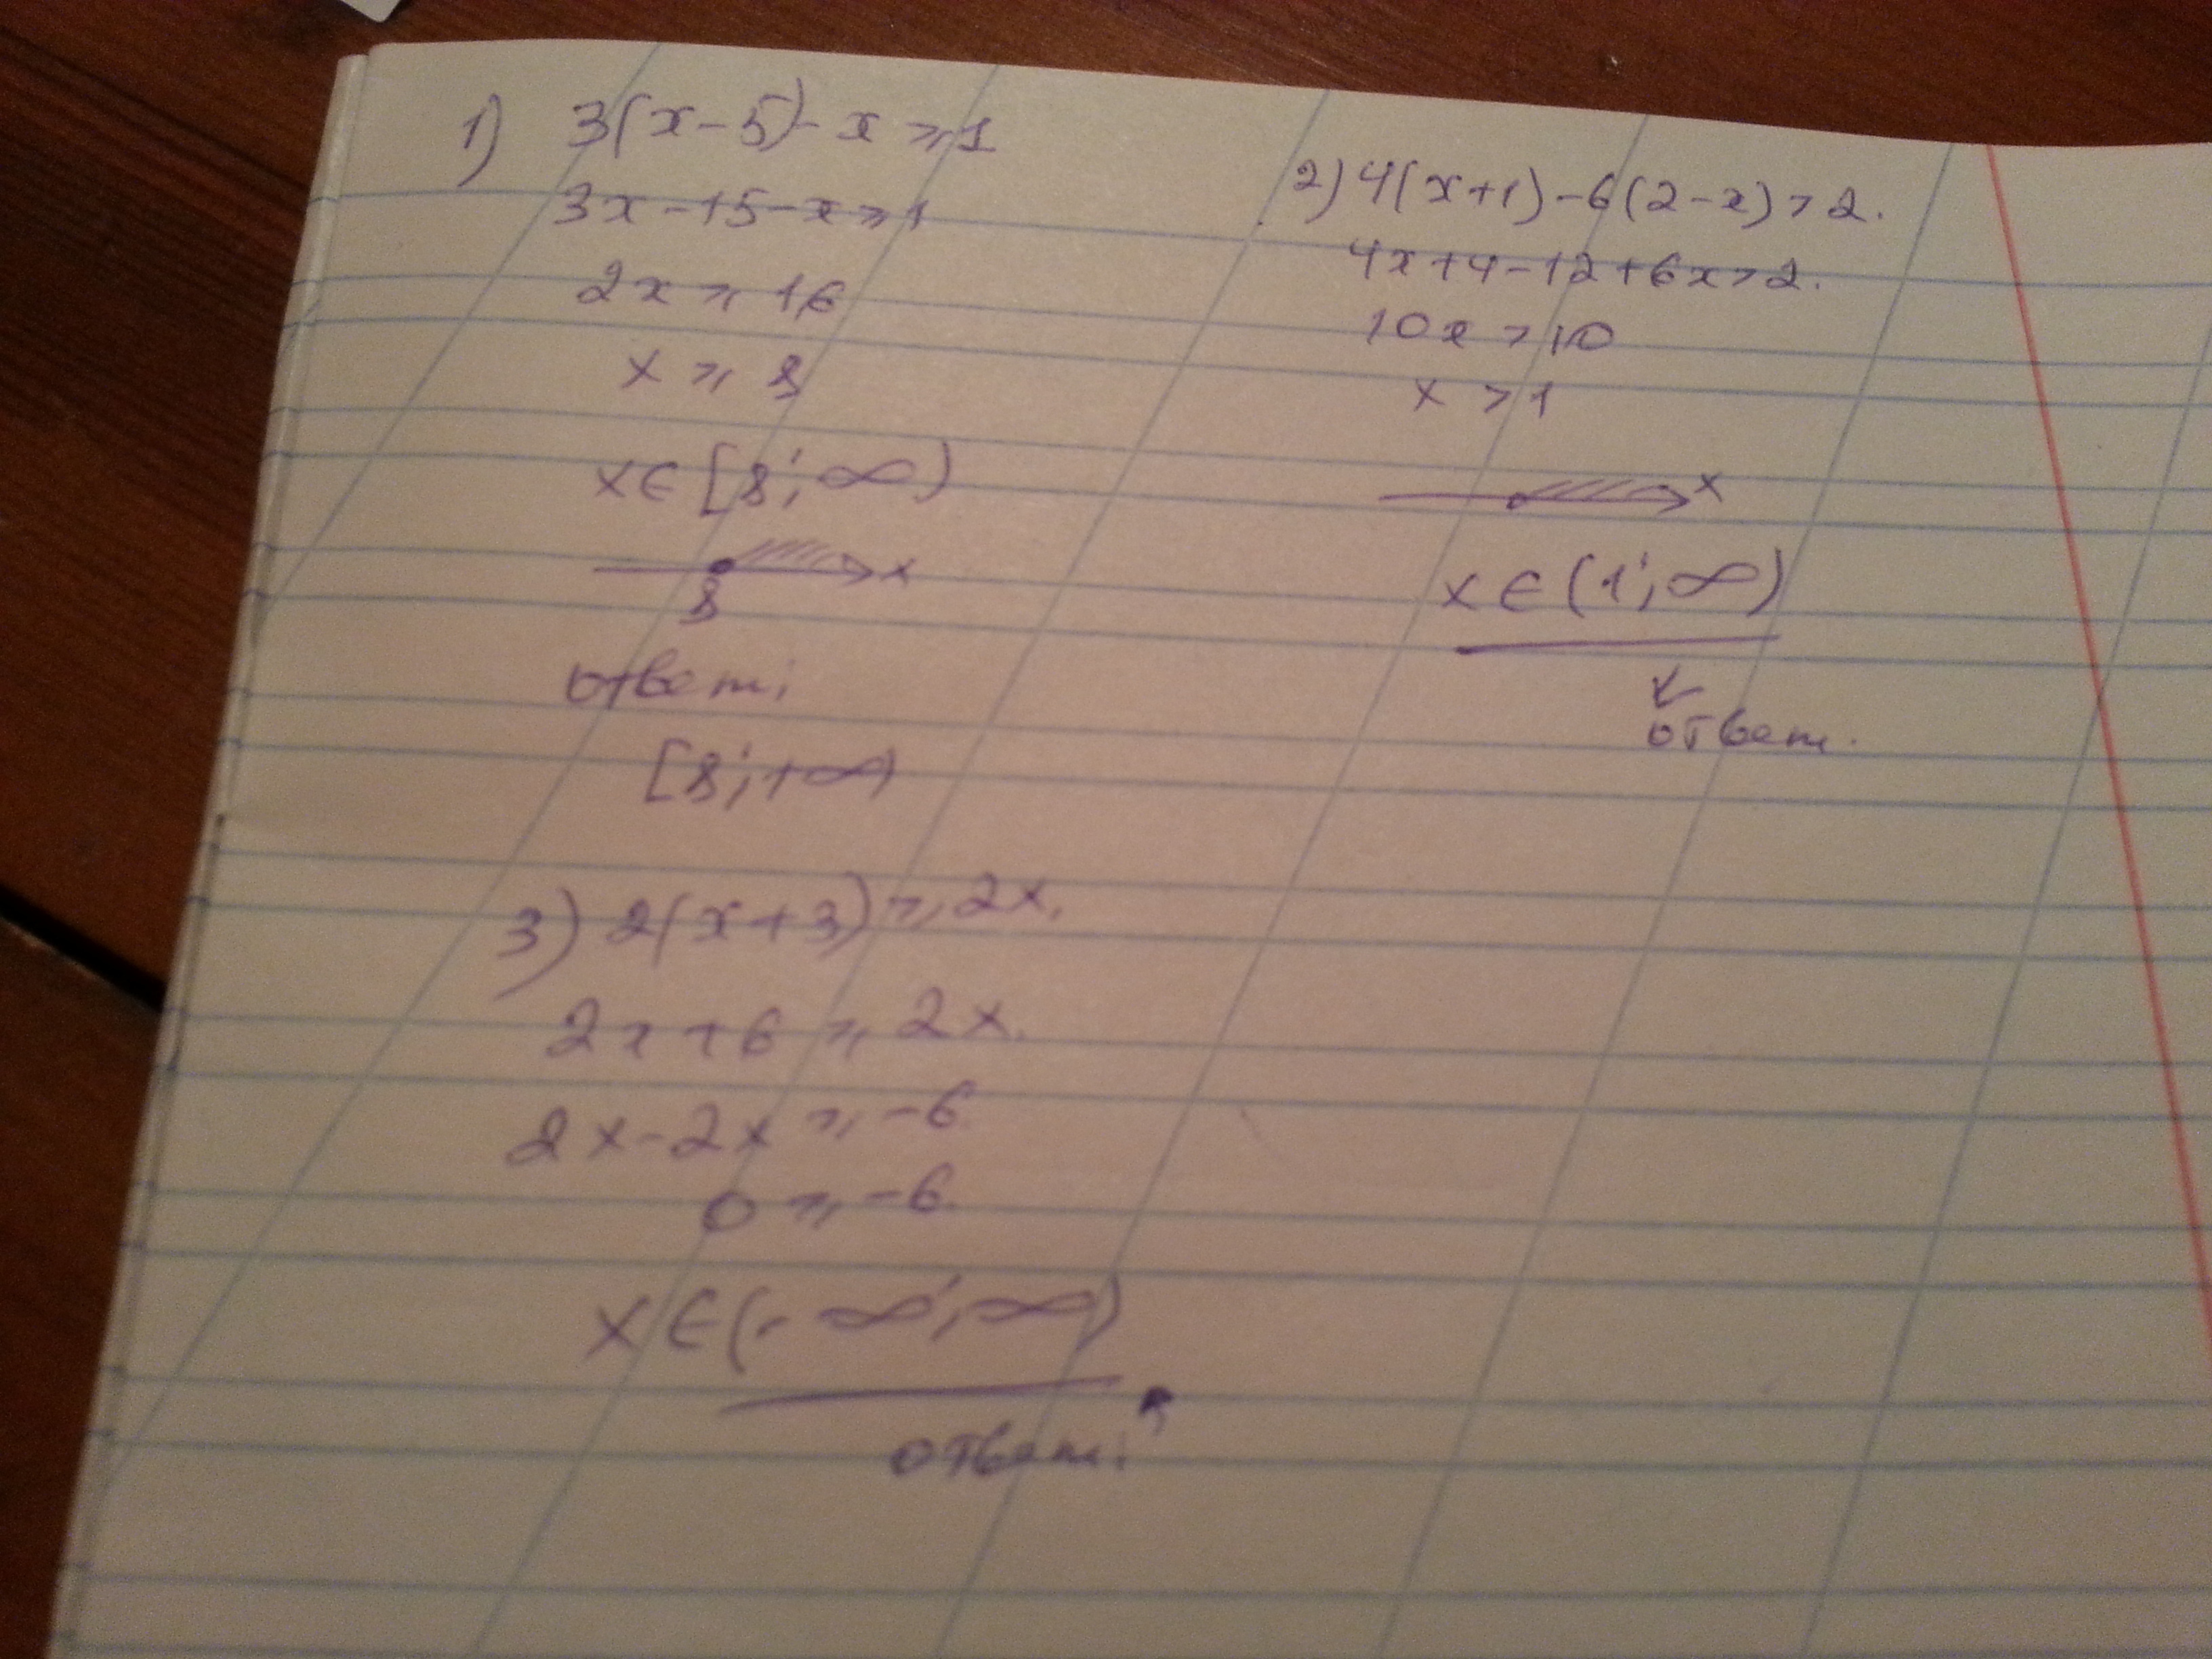 1) 3(x-5)-x ⩾ 1
3x-15-x ⩾ 1
2x ⩾ 16
x ⩾ 8
x∈[8; ∞)
x
8
ответ:
[8; +∞)
2) 4(x+1)-6(2-x) > 2.
4x+4-12+6x > 2.
10x > 10
x > 1
x
x∈(1; ∞)
ответ.
3) 2(x+3) ⩾ 2x.
2x+6 ⩾ 2x.
2x-2x ⩾ -6
0 ⩾ -6.
x∈(-∞; ∞)
ответ: